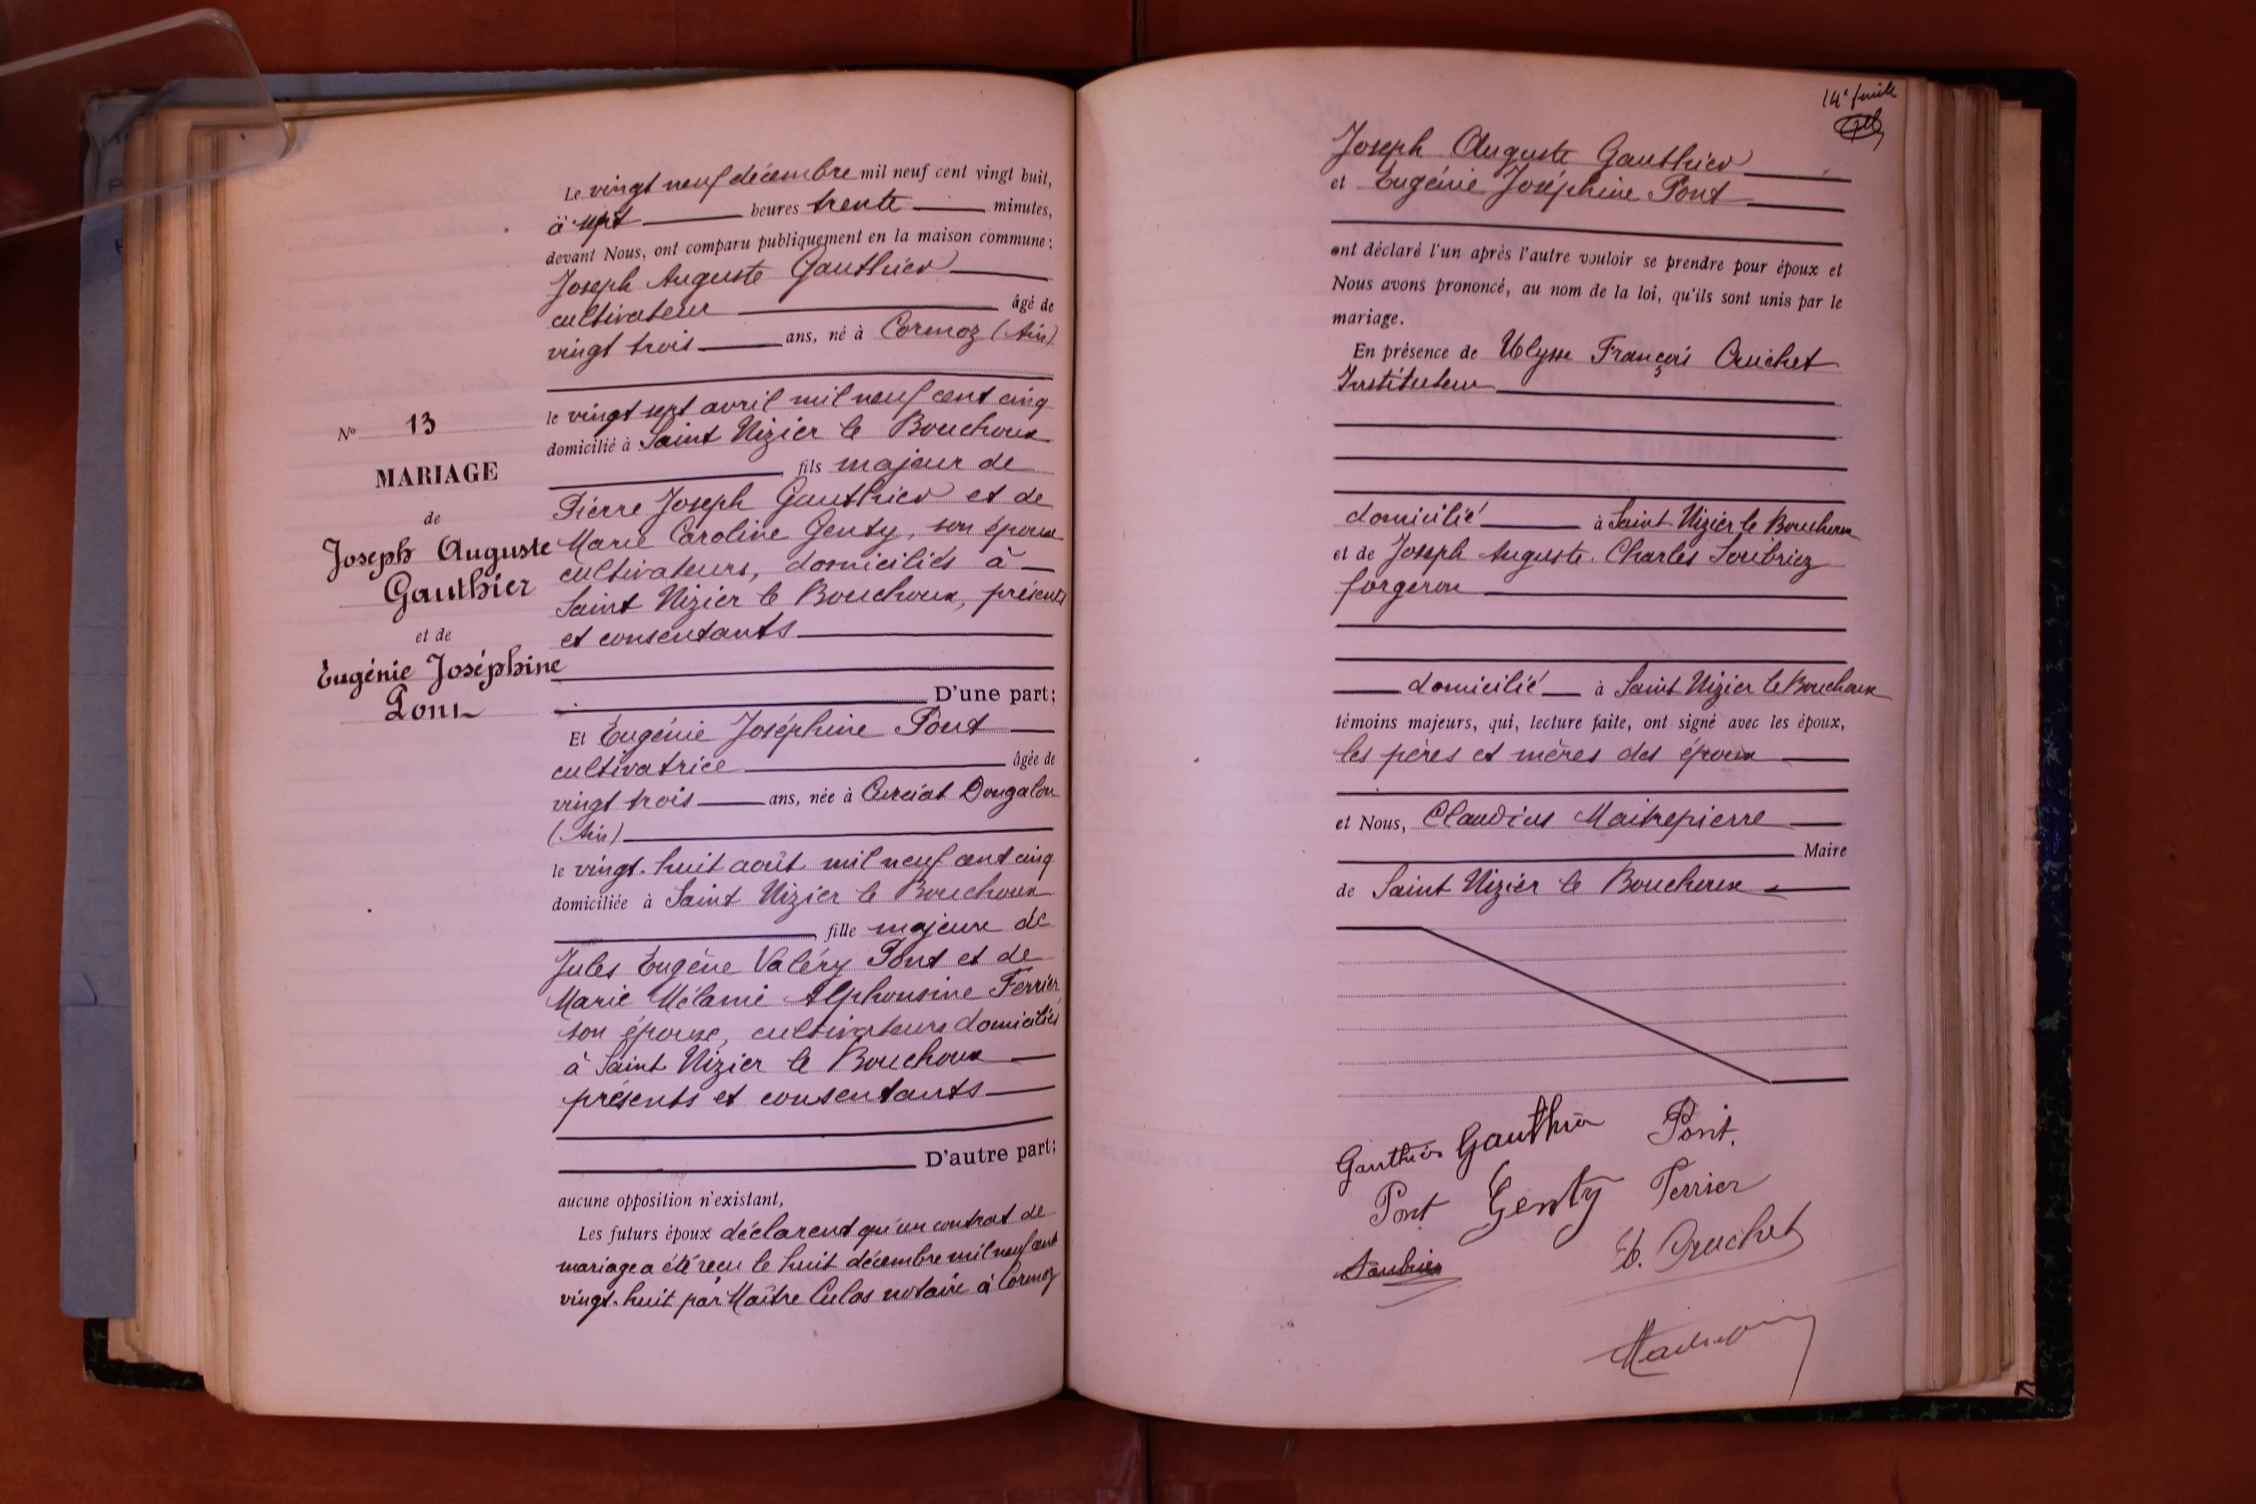 Le vingt neuf décembre mil neuf cent vingt huit,
à sept heures trente minutes,
devant Nous, ont comparu publiquement en la maison commune :
Joseph Auguste Gauthier
cultivateur âgé de
vingt trois ans, né à Cormoz (Ain)
le vingt sept avril mil neuf cent cinq
domicilié à Saint Nizier le Bouchoux
fils majeur de
Pierre Joseph Gauthier et de
Marie Caroline Genty, son épouse
cultivateurs, domiciliés à
Saint Nizier le Bouchoux, présents
et consentants
D'une part;
Et Eugénie Joséphine Pont
cultivatrice âgée de
vingt trois ans, née à Curciat Dongalon
(Ain)
le vingt-huit août mil neuf cent cinq
domiciliée à Saint Nizier le Bouchoux
fille majeure de
Jules Eugène Valéry Pont et de
Marie Mélanie Alphonsine Ferrier
son épouse, cultivateurs domiciliés
à Saint Nizier le Bouchoux
présents et consentants
D'autre part;
aucune opposition n'existant,
Les futurs époux déclarent qu'un contrat de
mariage a été reçu le huit décembre mil neuf cent
vingt-huit par Maître Culas notaire à Cormoz
No 13
MARIAGE
de
Joseph Auguste
Gauthier
et de
Eugénie Joséphine
Pont
14e feuille
Joseph Auguste Gauthier
et Eugénie Joséphine Pont
ont déclaré l'un après l'autre vouloir se prendre pour époux et
Nous avons prononcé, au nom de la loi, qu'ils sont unis par le
mariage.
En présence de Ulysse François Cruchet
Instituteur
domicilié à Saint Nizier le Bouchoux
et de Joseph Auguste Charles
forgeron
domicilié à Saint Nizier le Bouchoux
témoins majeurs, qui, lecture faite, ont signé avec les époux,
les pères et mères des époux
et Nous, Claudius Maitrepierre
Maire
de Saint Nizier le Bouchoux
Gauthier Gauthier Pont
Pont Genty Ferrier
Cruchet